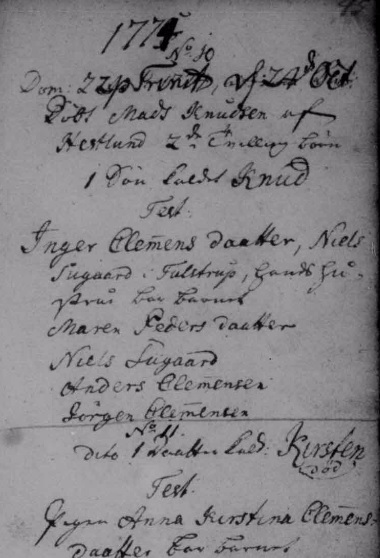 45
1774
No. 10
Dom: 22 p Trinit, d: 24d Oct:
Döbt Mads Knudsen af
Hestlund 2de Tvilling börn
1 Sön kaldet Knud
Test:
Inger Clem̄ens daatter, Niels
Sugaard i Tulstrup, hands Hu-
strue bar barnet
Maren Peders daatter
Niels Sugaard
Anders Clem̄ensen
Jörgen Clem̄ensen
No. 11.
dito 1 Daatter kald: Kirsten
död
Test:
Pigen Anna Kirstina Clem̄ens-
daatter bar barnet